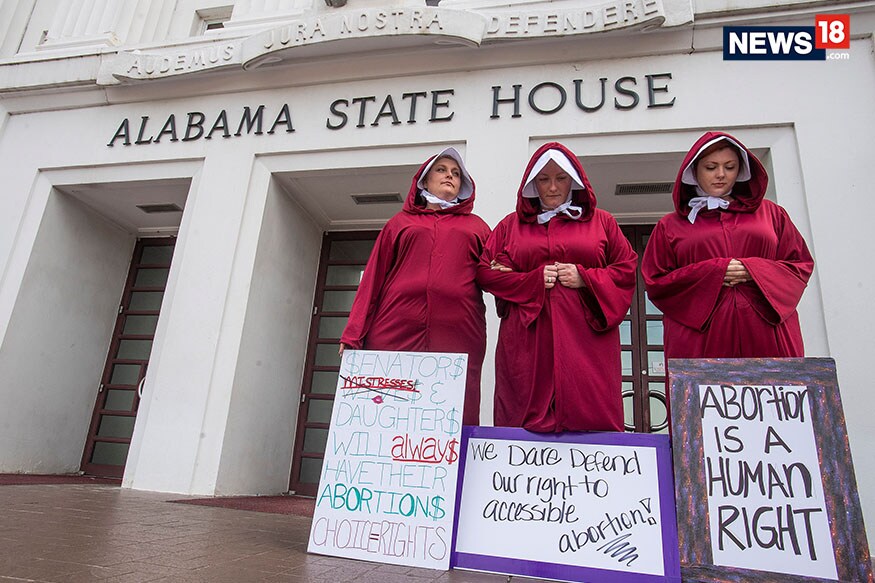 AUDEMUS JURA NOSTRA DEFENDERE
NEWS18
.com
ALABAMA STATE HOUSE
$ENATOR$
MISTRESSES
&
DAUGHTER$
WILL always
HAVE THEIR
ABORTION$
CHOICE=RIGHTS
We Dare Defend
our right to
accessible
abortion!
ABORTION
IS A
HUMAN
RIGHT